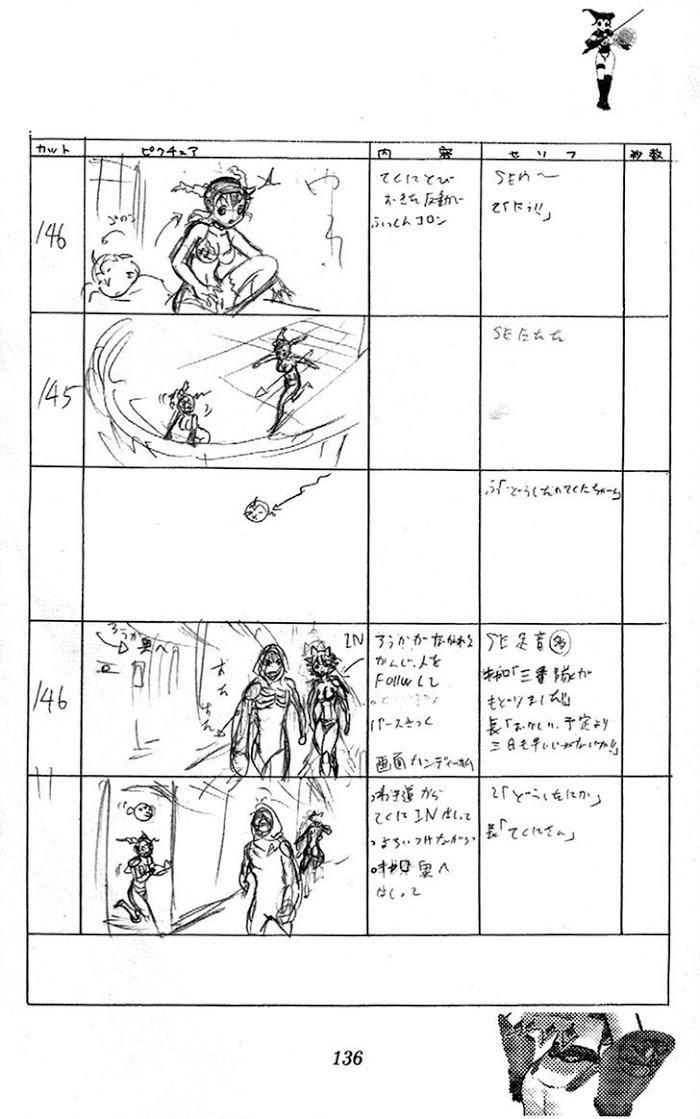 カット ピクチュア 内容 セリフ 秒数
146
ゆら
コロン
てくにとび
おきた反動で
ふっくんコロン
SEウ〜
145
SEたたた
146
ろうか
奥へ
IN
ろうかがながれる
かんじ、人を
Followして
パースきつく
SE足音
「三番隊が
もどりました!!」
長「おかしい、予定より
三日も早いじゃないか!!」
〃
わき道から
てくにIN出して
よろいつけながら
奥へ
はしって
て「どうしたにか」
長「てくにさん」
136